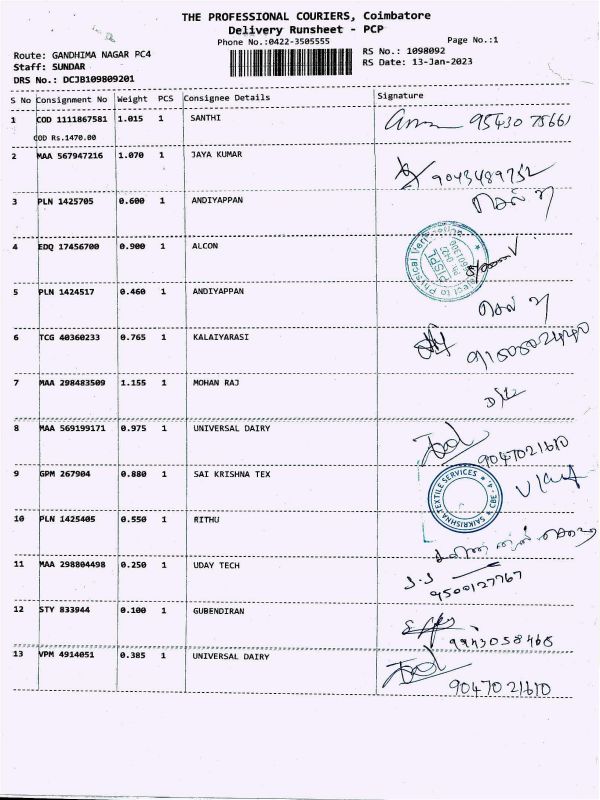 THE PROFESSIONAL COURIERS, Coimbatore
Delivery Runsheet - PCP
Phone No.:0422-3505555
Page No.:1
Route: GANDHIMA NAGAR PC4
RS No.: 1098092
Staff: SUNDAR
RS Date: 13-Jan-2023
DRS No.: DCJB109809201
S No Consignment No Weight PCS Consignee Details Signature
1 COD 1111867581 1.015 1 SANTHI 95430 75661
COD Rs.1470.00
2 MAA 567947216 1.070 1 JAYA KUMAR 9043489752
3 PLN 1425705 0.600 1 ANDIYAPPAN
4 EDQ 17456700 0.900 1 ALCON
5 PLN 1424517 0.460 1 ANDIYAPPAN
6 TCG 40360233 0.765 1 KALAIYARASI
7 MAA 298483509 1.155 1 MOHAN RAJ
8 MAA 569199171 0.975 1 UNIVERSAL DAIRY 9047021610
9 GPM 267904 0.880 1 SAI KRISHNA TEX SAIKRISHNA TEXTILE SERVICES CBE - 4
10 PLN 1425405 0.550 1 RITHU
11 MAA 298804498 0.250 1 UDAY TECH 9500127767
12 STY 833944 0.100 1 GUBENDIRAN 9943058468
13 VPM 4914051 0.385 1 UNIVERSAL DAIRY 9047021610